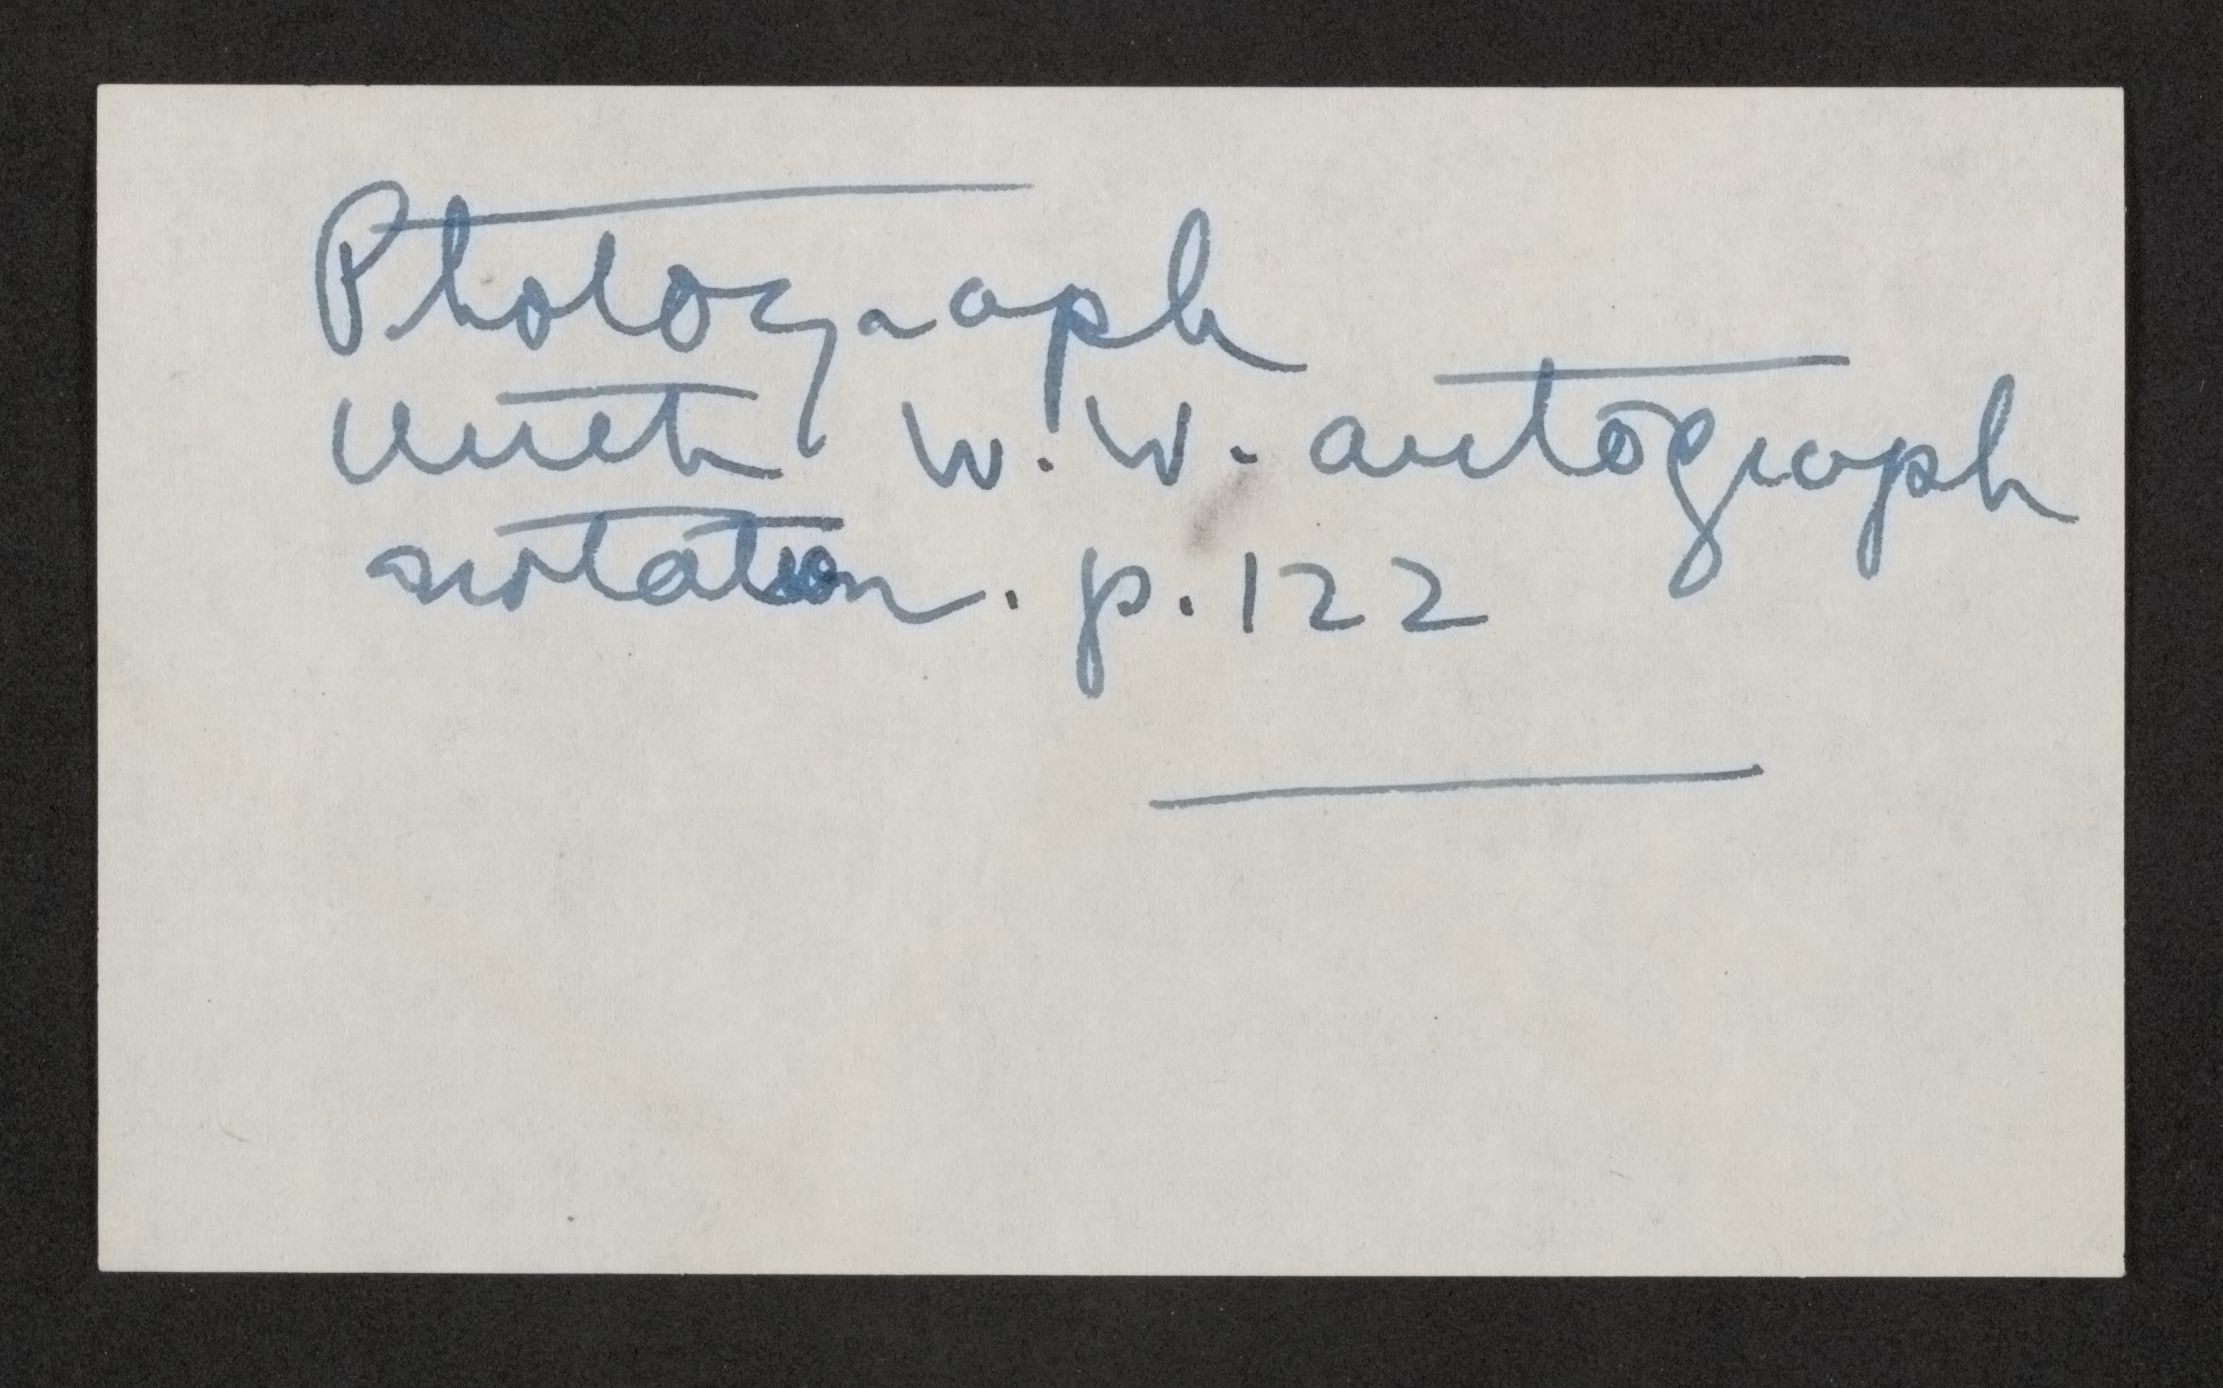 Photograph
with W. W. autograph
notation. p. 122